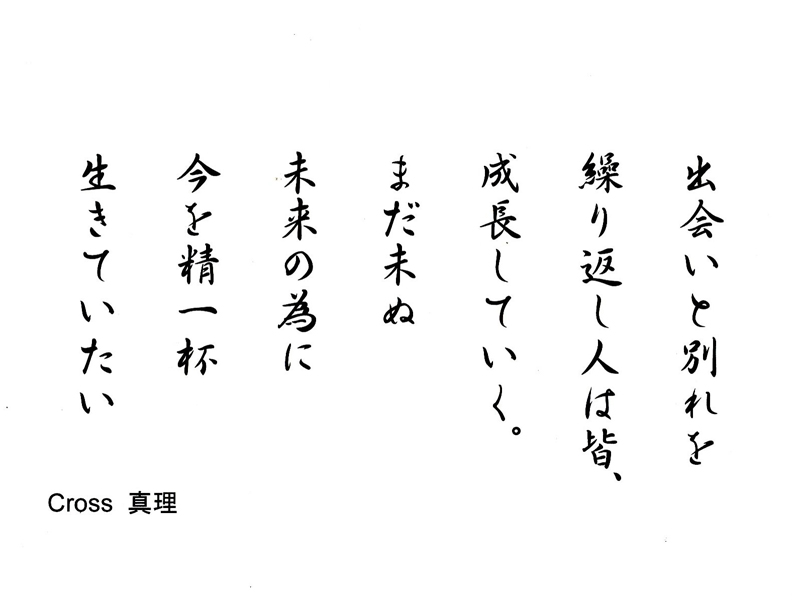 出会いと別れを
繰り返し人は皆、
成長していく。
まだ未ぬ
未来の為に
今を精一杯
生きていたい
Cross 真理